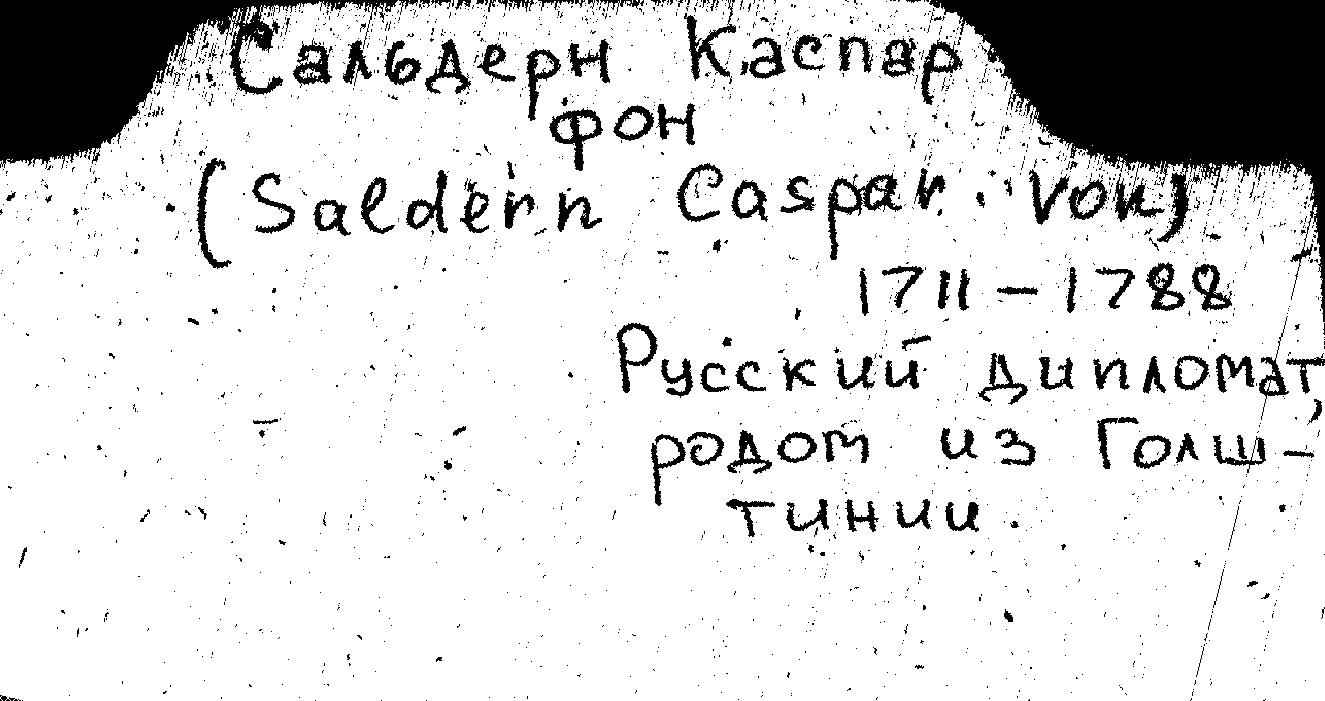 Сальдерн Каспар
фон
(Saldern Caspar von)
1711 – 1788
Русский дипломат,
родом из Голш-
тинии.